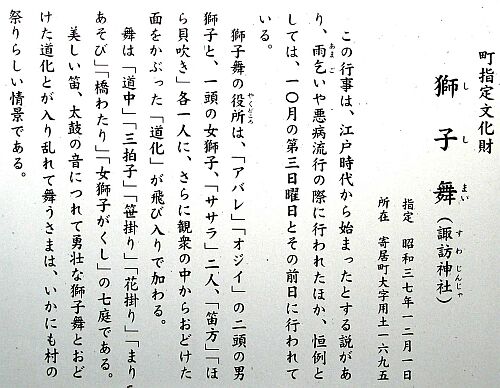 町指定文化財
獅子舞（諏訪神社）
しし まい すわ じんじゃ
指定 昭和三七年一二月一日
所在 寄居町大字用土一六九五
この行事は、江戸時代から始まったとする説があ
り、雨乞いや悪病流行の際に行われたほか、恒例と
あまご
しては、一〇月の第三日曜日とその前日に行われて
いる。
獅子舞の役所は、「アバレ」「オジイ」の二頭の男
やくどころ
獅子と、一頭の女獅子、「ササラ」二人、「笛方」「ほ
ら貝吹き」各一人に、さらに観衆の中からおどけた
面をかぶった「道化」が飛び入りで加わる。
舞は「道中」「三拍子」「笹掛り」「花掛り」「まり
あそび」「橋わたり」「女獅子がくし」の七庭である。
美しい笛、太鼓の音につれて勇壮な獅子舞とおど
けた道化とが入り乱れて舞うさまは、いかにも村の
祭りらしい情景である。